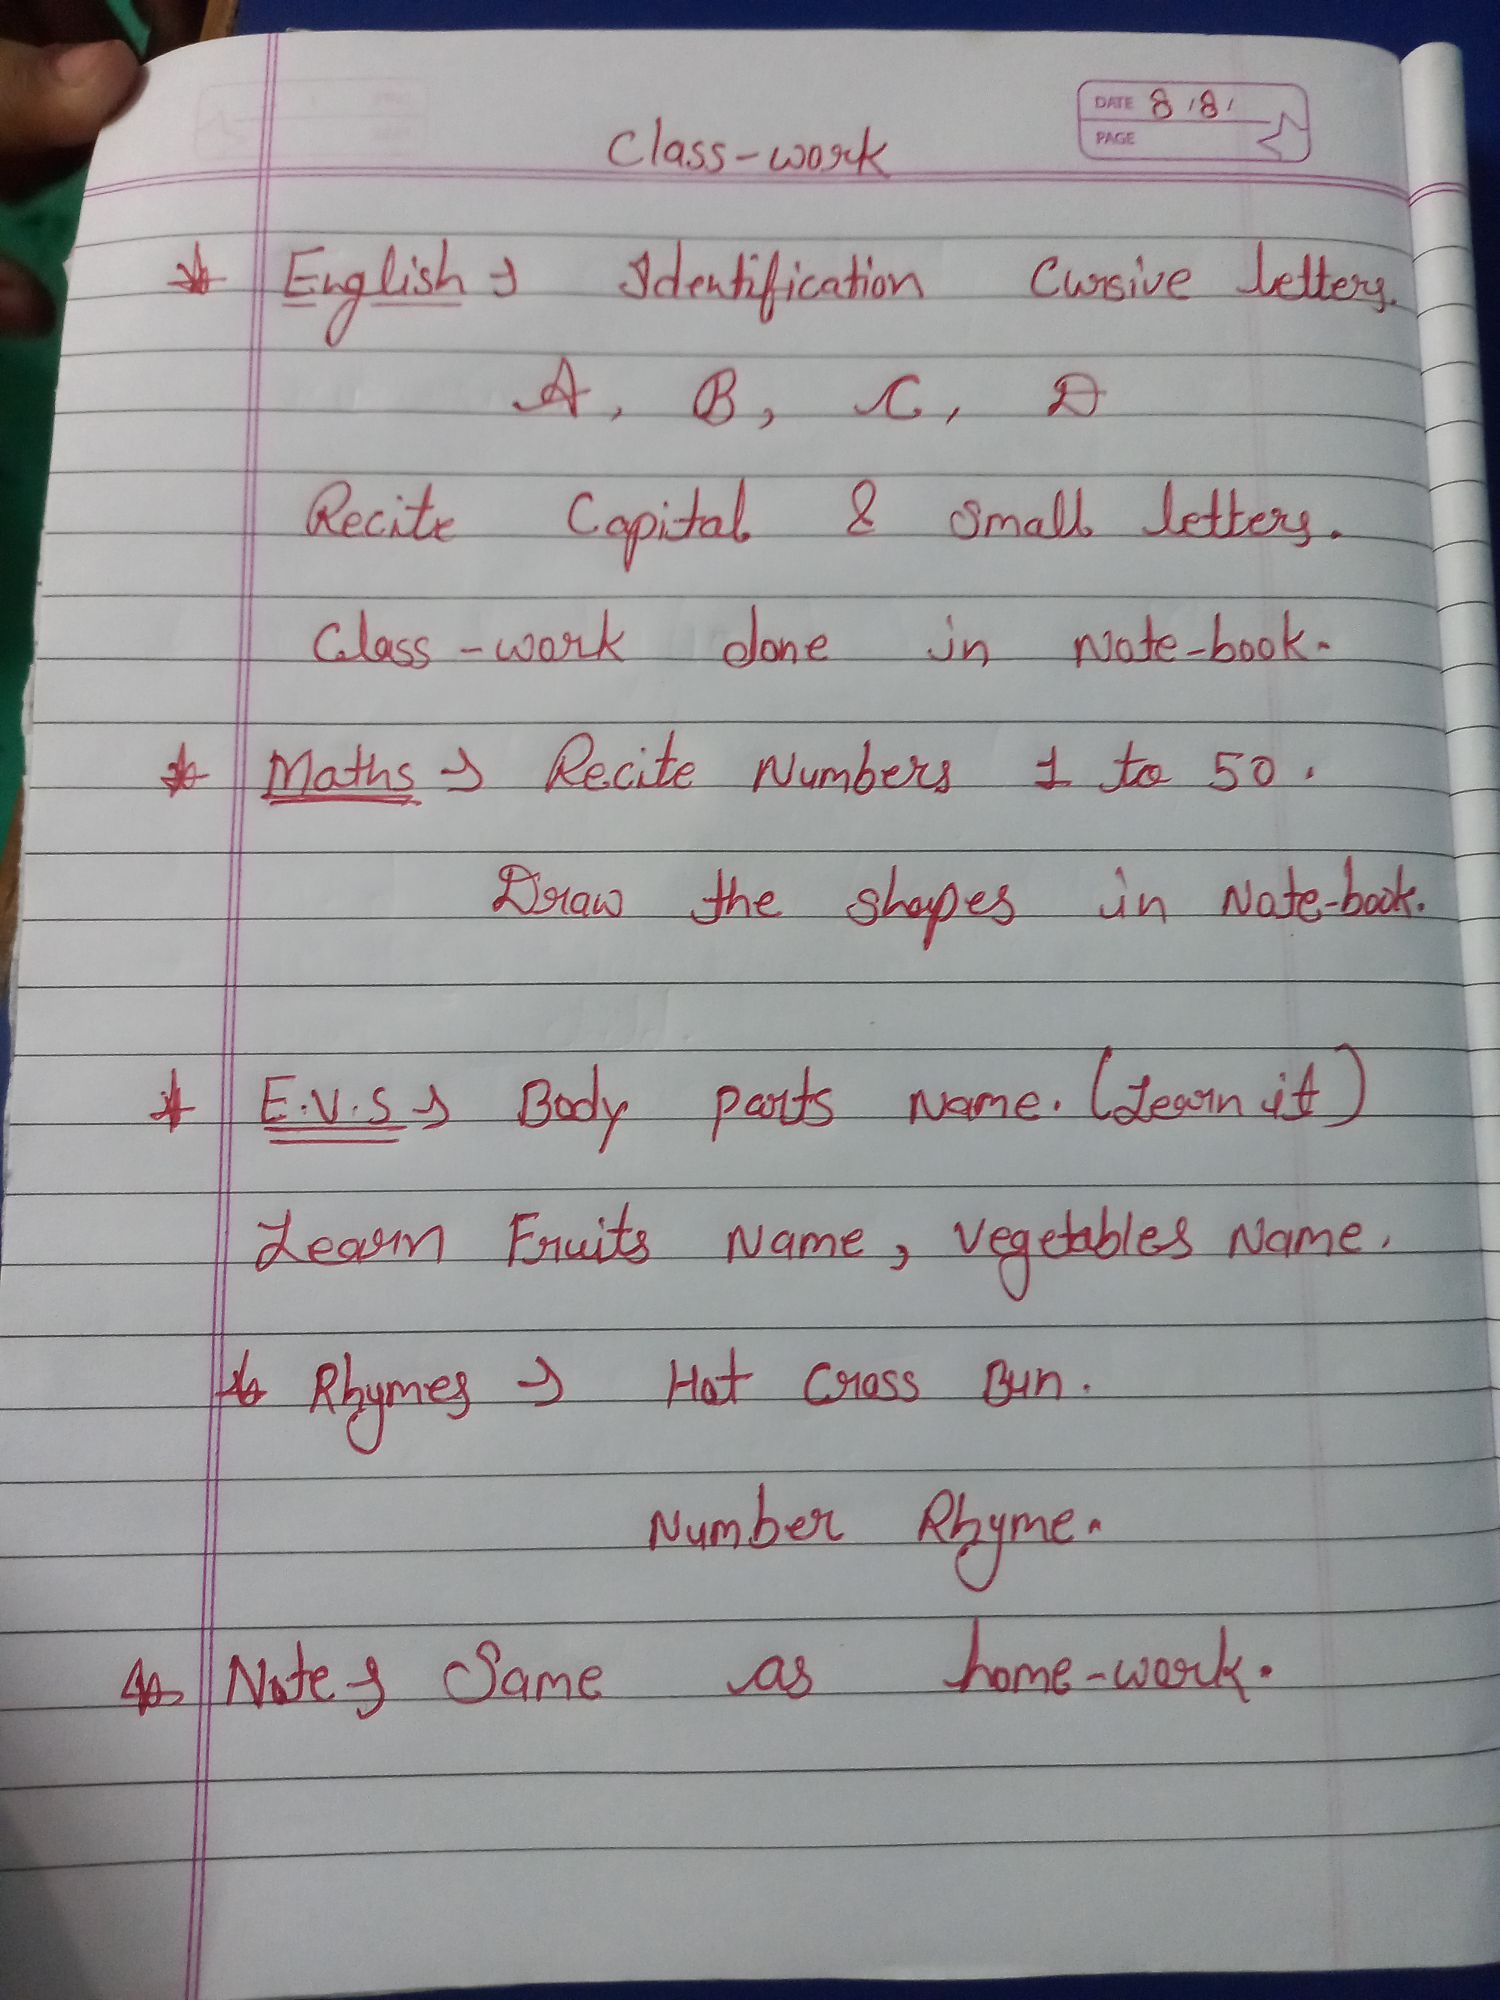 DATE 8/8/
PAGE
Class-work
* English → Identification Cursive letters.
A, B, C, D
Recite Capital & Small letters.
Class-work done in Note-book.
* Maths → Recite Numbers 1 to 50.
Draw the shapes in Note-book.
* E.V.S → Body parts Name. (Learn it)
Learn Fruits Name, Vegetables Name.
* Rhymes → Hot Cross Bun.
Number Rhyme.
* Note → Same as home-work.